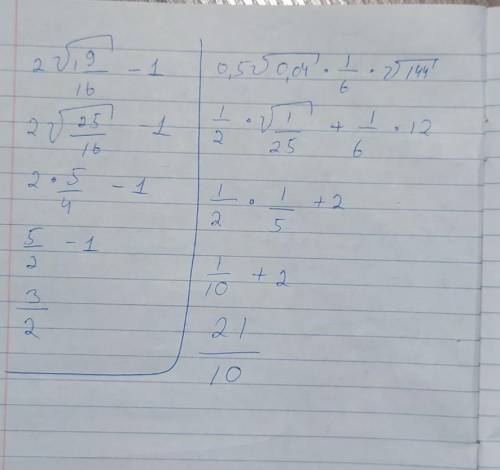 2√(1 9/16) - 1
2√(25/16) - 1
2 · 5/4 - 1
5/2 - 1
3/2
0,5√0,04 · 1/6 · √144
1/2 · √(1/25) + 1/6 · 12
1/2 · 1/5 + 2
1/10 + 2
21/10